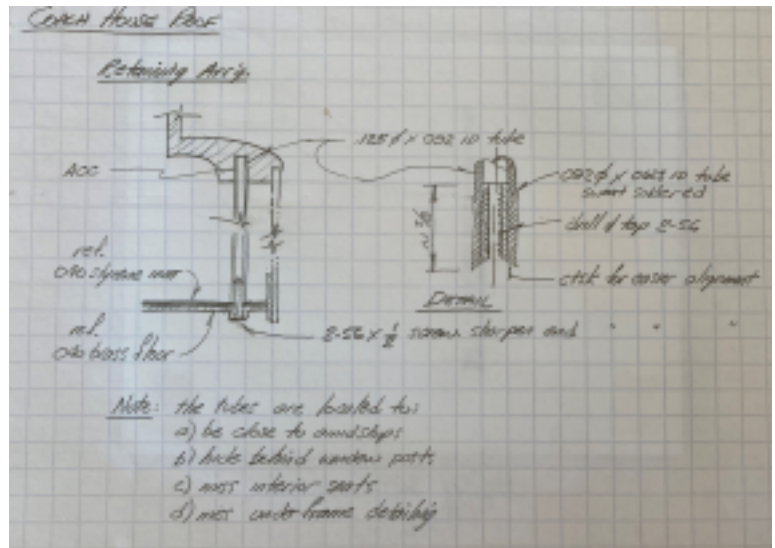 COACH HOUSE ROOF
Retaining Arr'g.
.125 ϕ x .092 ID tube
ACC
.092 ϕ x .063 ID tube
sweat soldered
drill & tap 2-56
ctsk for easier alignment
DETAIL
ref.
.040 styrene
ref.
.040 brass floor
2-56 x 1/2 screw sharpen end " " "
Note: the tubes are located to:
a) be close to amidships
b) hide behind window posts
c) miss interior seats
d) miss underframe detailing